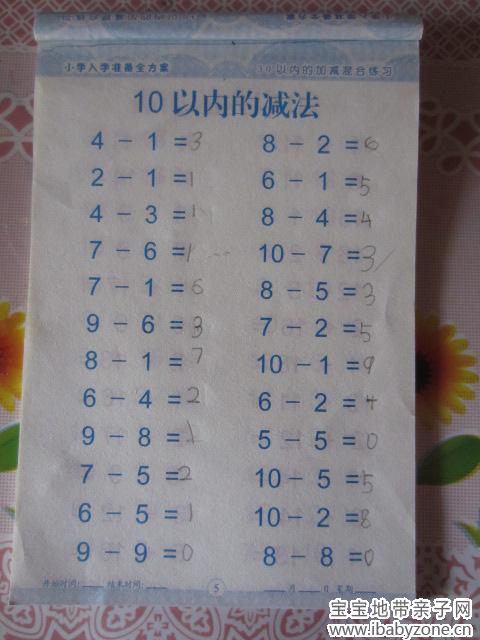 小学入学准备全方案 30以内的加减混合练习
10以内的减法
4 - 1 =3 8 - 2 =6
2 - 1 =1 6 - 1 =5
4 - 3 =1 8 - 4 =4
7 - 6 =1 10 - 7 =3
7 - 1 =6 8 - 5 =3
9 - 6 =3 7 - 2 =5
8 - 1 =7 10 - 1 =9
6 - 4 =2 6 - 2 =4
9 - 8 =1 5 - 5 =0
7 - 5 =2 10 - 5 =5
6 - 5 =1 10 - 2 =8
9 - 9 =0 8 - 8 =0
开始时间:____ 结束时间:____ 5 ____月____日 星期____
宝宝地带亲子网
www.ibabyzone.cn